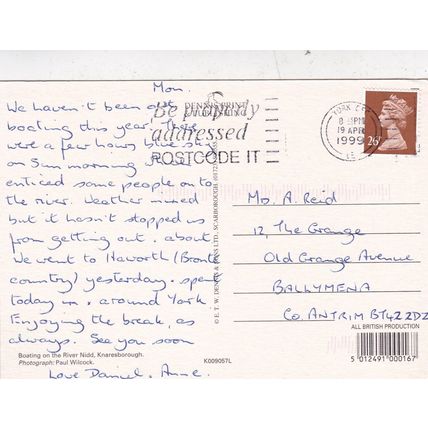 Mon.
We haven't been out
boating this year! There
were a few hours blue skies
on Sun morning &
enticed some people on to
the river. Weather mixed
but it hasn't stopped us
from getting out & about.
We went to Haworth (Bronte
country) yesterday & spent
today in & around York
Enjoying the break, as
always. See you soon
Love Daniel & Anne.
Boating on the River Nidd, Knaresborough.
Photograph: Paul Wilcock.
K009057L
DENNIS PRINT
Be properly
addressed
POSTCODE IT
YORK
8 PM
19 APR
1999
26
© E.T.W. DENNIS & SONS LTD., SCARBOROUGH
Ms. A. Reid
12, The Grange
Old Grange Avenue
BALLYMENA
Co. ANTRIM BT42 2DZ
ALL BRITISH PRODUCTION
5 012491 000167